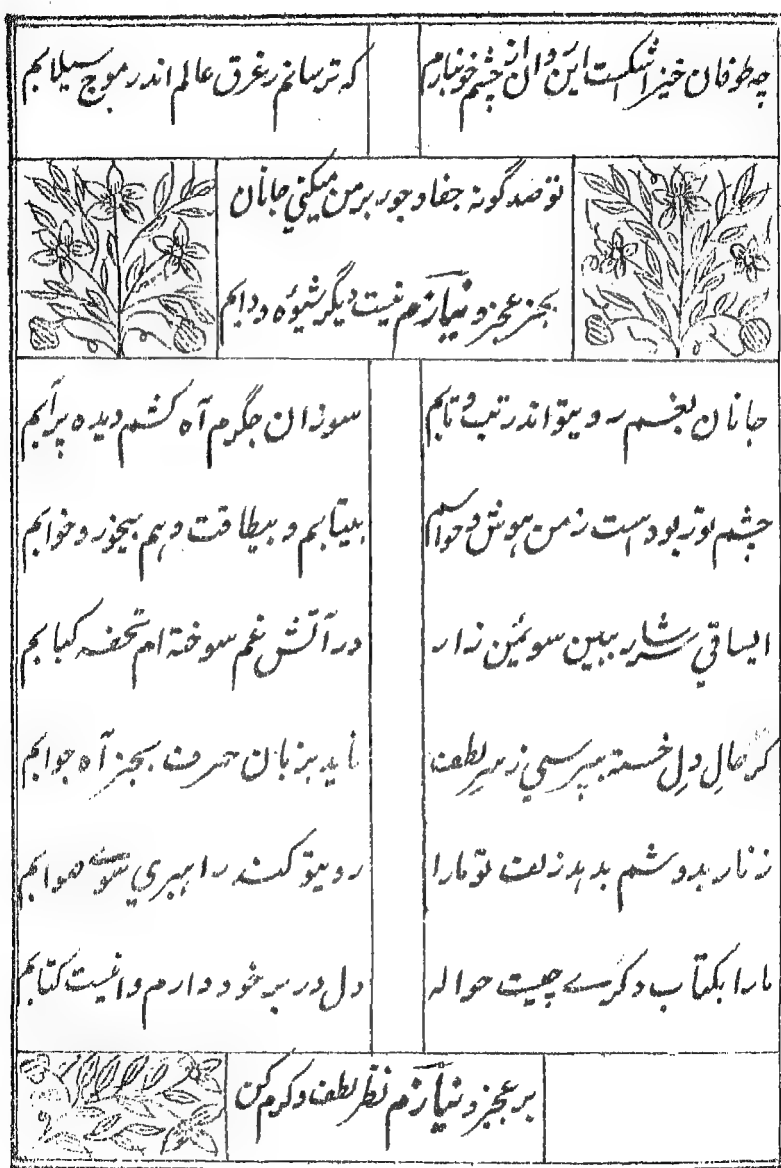 چه طوفان خیز اشکست این روان از چشم خونبارم که ترسانم ز غرق عالم اندر موج سیلابم
تو صد گونه جفا و جور بر من میکنی جانان
بجز عجز و نیازم نیست دیگر شیوه و دابم
جانان بغم رویتو اندر تب و تابم سوزان جگرم آه کشم دیده پرآبم
چشم تو ربودست ز من هوش و حواسم بیتابم و بیطاقت و هم بیخور و خوابم
ایساقی سرشار ببین سوئمن زار در آتش غم سوخته ام تحفه کبابم
گر حال دل خسته بپرسی ز سر لطف ناید بزبان حرف بجز آه جوابم
زنار بدوشم بدهد زلف تو مارا رویتو کند راهبری سوے هوابم
مارا بکتاب دگرے چیست حواله دل در بر خود دارم و اینست کتابم
بر عجز و نیازم نظر لطف و کرم کن